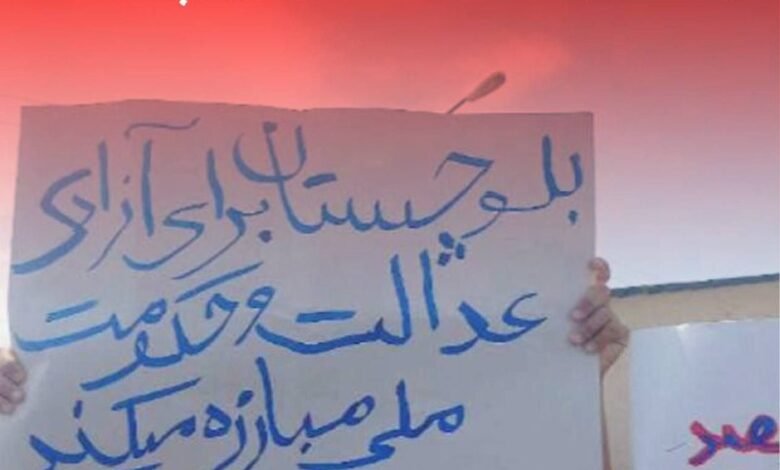 بلوچستان برای آزادی
عدالت و حکومت
ملی مبارزه میکند